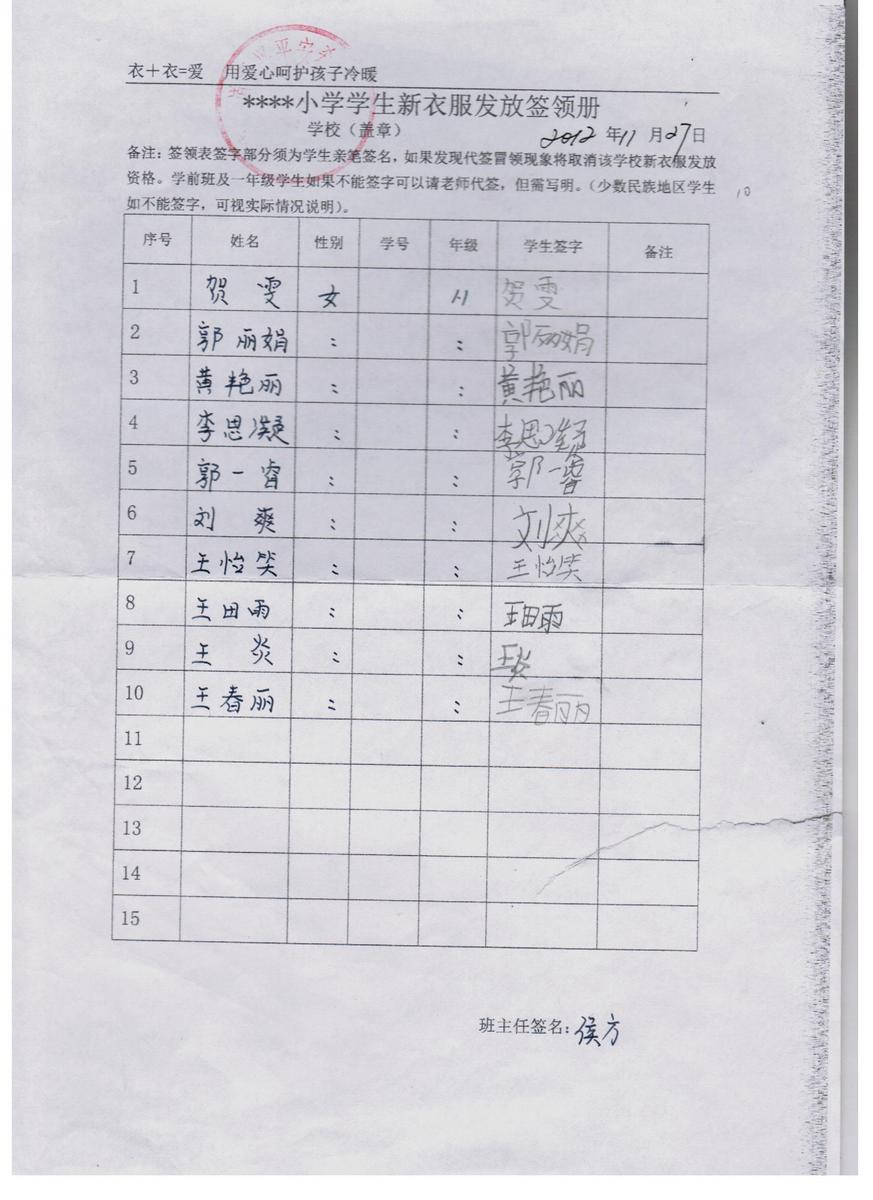 衣＋衣=爱 用爱心呵护孩子冷暖
****小学学生新衣服发放签领册
学校（盖章）
2012 年 11 月 27 日
备注：签领表签字部分须为学生亲笔签名，如果发现代签冒领现象将取消该学校新衣服发放
资格。学前班及一年级学生如果不能签字可以请老师代签，但需写明。（少数民族地区学生
如不能签字，可视实际情况说明）。
10
序号 姓名 性别 学号 年级 学生签字 备注
1 贺 雯 女 贺雯
2 郭丽娟 : : 郭丽娟
3 黄艳丽 : : 黄艳丽
4 李思凝 : : 李思凝
5 郭一睿 : : 郭一睿
6 刘 爽 : : 刘爽
7 王怡笑 : : 王怡笑
8 王田雨 : : 王田雨
9 王 炎 : : 王炎
10 王春丽 : : 王春丽
11
12
13
14
15
班主任签名：侯方